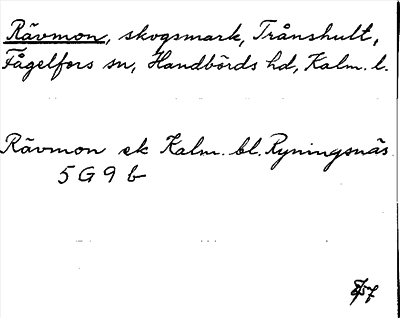 Rävmon, skogsmark, Trånshult,
Fågelfors sn, Handbörds hd, Kalm. l.
Rävmon ek Kalm. bl. Ryningsnäs
5 G 9 b